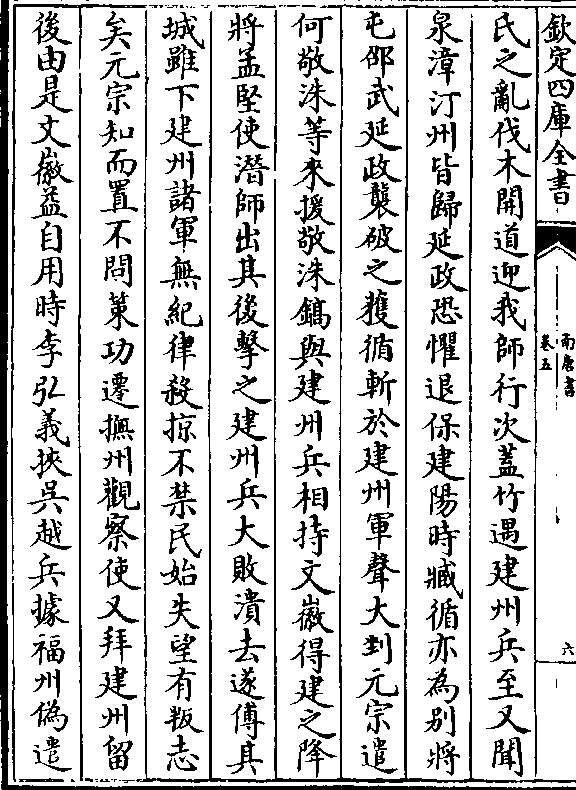 欽定四庫全書
南唐書
卷五
六
氏之亂伐木開道迎我師行次蓋竹遇建州兵至又聞
泉漳汀州皆歸延政恐懼退保建陽時臧循亦為別將
屯邵武延政襲破之獲循斬於建州軍聲大刲元宗遣
何敬洙等來援敬洙鎬與建州兵相持文徽得建之降
將孟堅使潛師出其後擊之建州兵大敗潰去遂傅其
城雖下建州諸軍無紀律殺掠不禁民始失望有叛志
矣元宗知而置不問策功遷撫州觀察使又拜建州留
後由是文徽益自用時李弘義挾吳越兵據福州偽遣